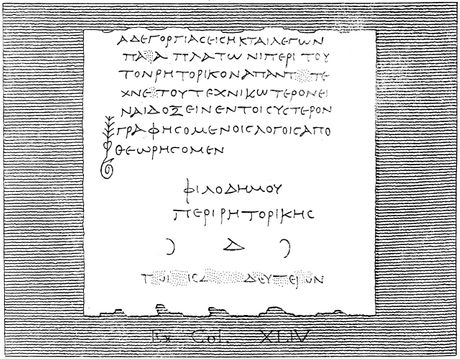 ΑΔΕΓΟΡΓΙΑϹΕΙϹΗΚΤΑΙΛΕΓΩΝ
ΠΛΑΤΩΝΙΠΕΡΙ ΤΟΥ
ΤΟΝΡΗΤΟΡΙΚΟΝΑΠΑΝΤ ΤΕ
ΧΝΕΙΤΟΥΤΕΧΝΙΚΩΤΕΡΟΝΕΙ
ΝΑΙΔΟΞΕΙΝΕΝΤΟΙϹΥϹΤΕΡΟΝ
ΓΡΑΦΗϹΟΜΕΝΟΙϹΛΟΓΟΙϹΑΠΟ
ΘΕΩΡΗϹΟΜΕΝ
ΦΙΛΟΔΗΜΟΥ
ΠΕΡΙΡΗΤΟΡΙΚΗϹ
Ͻ Δ Ͻ
ΔΕΥΤΕΡΟΝ
Ex Col. XLIV